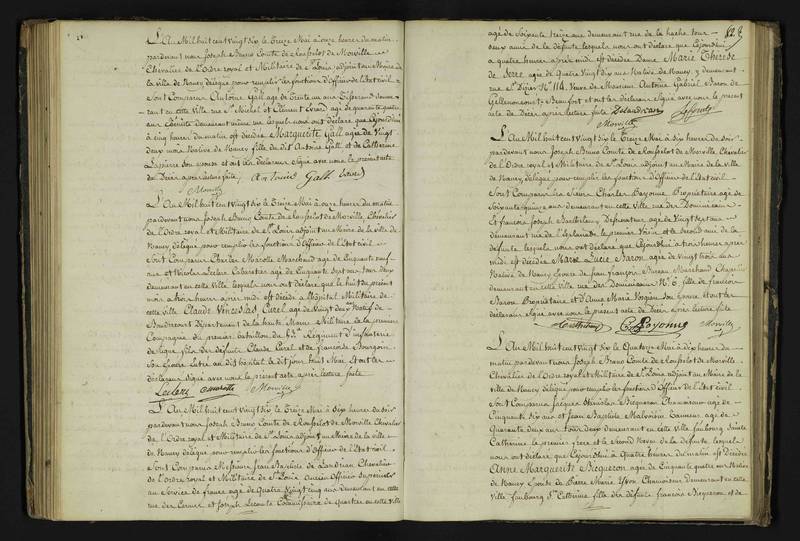 L'An Mil huit cent Vingt Six le Treize Mai à onze heures du matin
pardevant nous Joseph Bruno Comte de Rousselot de Morville
Chevalier de l'Ordre royal et Militaire de St Louis adjoint au Maire de
la Ville de Nancy délégué pour remplir les fonctions d'Officier de l'état civil
Sont Comparus Antoine Gall agé de Trente un ans Tisserand demeu-
rant en cette Ville rue St Michel et Clement Evrard agé de quarante quatre
ans demeurant même rue lesquels nous ont déclaré que Cejourd'hui
à cinq heures du matin est décédée Marguerite Gall agée de Vingt
deux mois Native de Nancy fille du dit Antoine Gall et de Catherine
Lapierre son épouse et ont les déclarans signé avec nous le présent acte
de Décès après lecture faite Antoine Gall Evrard
Morville
L'An Mil huit cent Vingt Six le Treize Mai à onze heures du matin
pardevant nous Joseph Bruno Comte de Rousselot de Morville Chevalier
de l'Ordre royal et Militaire de St Louis adjoint au Maire de la Ville
de Nancy délégué pour remplir les fonctions d'Officier de l'état civil
Sont Comparus Marotte Marchand agé de Cinquante neuf
ans et Nicolas Leclerc Cabaretier agé de Cinquante Sept ans tous deux
demeurant en cette Ville lesquels nous ont déclaré que le huit du présent
mois à heures après midi est décédé à l'hôpital Militaire de
cette Ville Claude Vinceslas Curel agé de Vingt deux Natif de
Boudrecourt Département de la haute Marne Militaire de la première
Compagnie du premier bataillon du Régiment d'infanterie
de ligne fils des défunts Claude Curel et de Françoise Bourgoin
Son Entré au dit hôpital le dit jour huit Mai Et ont les
déclarans signé avec nous le présent acte après lecture faite
Leclerc Marotte Morville
L'An Mil huit cent Vingt Six le Treize Mai à Six heures du Soir
pardevant nous Joseph Bruno Comte de Rousselot de Morville Chevalier
de l'Ordre royal et Militaire de St Louis adjoint au Maire de la Ville
de Nancy délégué pour remplir les fonctions d'Officier de l'état civil
Sont Comparus Messieurs Jean Baptiste de Landrian Chevalier
de l'ordre royal et Militaire de St Louis ancien Officier Supérieur
au Service de france agé de Quatre Vingt cinq ans demeurant en cette
rue des Carmes et Joseph Lecomte Commissaire de quartier en cette Ville
agé de Soixante treize ans demeurant rue de la hache tous
deux amis de la défunte lesquels nous ont déclaré que Cejourd'hui
à quatre heures après midi est décédée Dame Marie Therese
de Serre agée de Quatre Vingt dix ans Native de Nancy y demeurant
rue St Dizier No 114 Veuve de Monsieur Antoine Gabriel Baron de
Gellenoncourt et ont les déclarans signé avec nous le présent
acte de Décès après lecture faite De Landrian
Morville
L'An Mil huit cent Vingt Six le Treize Mai à Six heures du Soir
pardevant nous Joseph Bruno Comte de Rousselot de Morville Chevalier
de l'Ordre royal et Militaire de St Louis adjoint au Maire de la Ville
de Nancy délégué pour remplir les fonctions d'Officier de l'état civil
Sont Comparus les Sieurs Charles Bayonne Propriétaire agé de
Soixante quinze ans demeurant en cette Ville rue des Dominicains
Et françois Joseph agé de Vingt sept ans
demeurant rue de l'Esplanade le premier Voisin et le second ami de la
défunte lesquels nous ont déclaré que Cejourd'hui à trois heures après
midi est décédée Marie Lucie Baron agée de Vingt trois ans
Native de Nancy Epouse de Jean François Bureau Marchand Chapelier
demeurant en cette Ville rue des Dominicains No 6 fille de francois
Baron Propriétaire et d'Anne Marie son Epouse et ont les
déclarans signé avec nous le présent acte de Décès après lecture faite
Bayonne Morville
L'An Mil huit cent Vingt Six le Quatorze Mai à dix heures du
matin pardevant nous Joseph Bruno Comte de Rousselot de Morville
Chevalier de l'Ordre royal et Militaire de St Louis adjoint au Maire de la
Ville de Nancy délégué pour remplir les fonctions d'Officier de l'état civil
Sont Comparus Jacques Stanislas Bicqueron Chamoiseur agé de
Cinquante six ans et Jean Baptiste Malvoisin Tanneur agé de
Quarante deux ans tous deux demeurant en cette Ville faubourg Sainte
Catherine le premier frère et le Second Neveu de la défunte lesquels
nous ont déclaré que Cejourd'hui à Quatre heures du matin est Décédée
Anne Marguerite Bicqueron agée de Cinquante quatre ans Native
de Nancy Epouse de Pierre Marie Yvon Chamoiseur demeurant en cette
Ville faubourg Ste Catherine fille des défunts francois Bicqueron et de